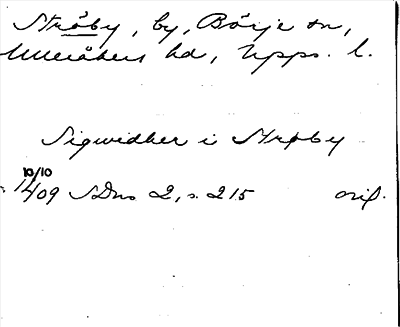 Ströby, by, Börje sn,
Ulleråkers hd, Upps. l.
Sigwidher i Strøby
10/10
14/09 SDns 2, s. 215 orig.